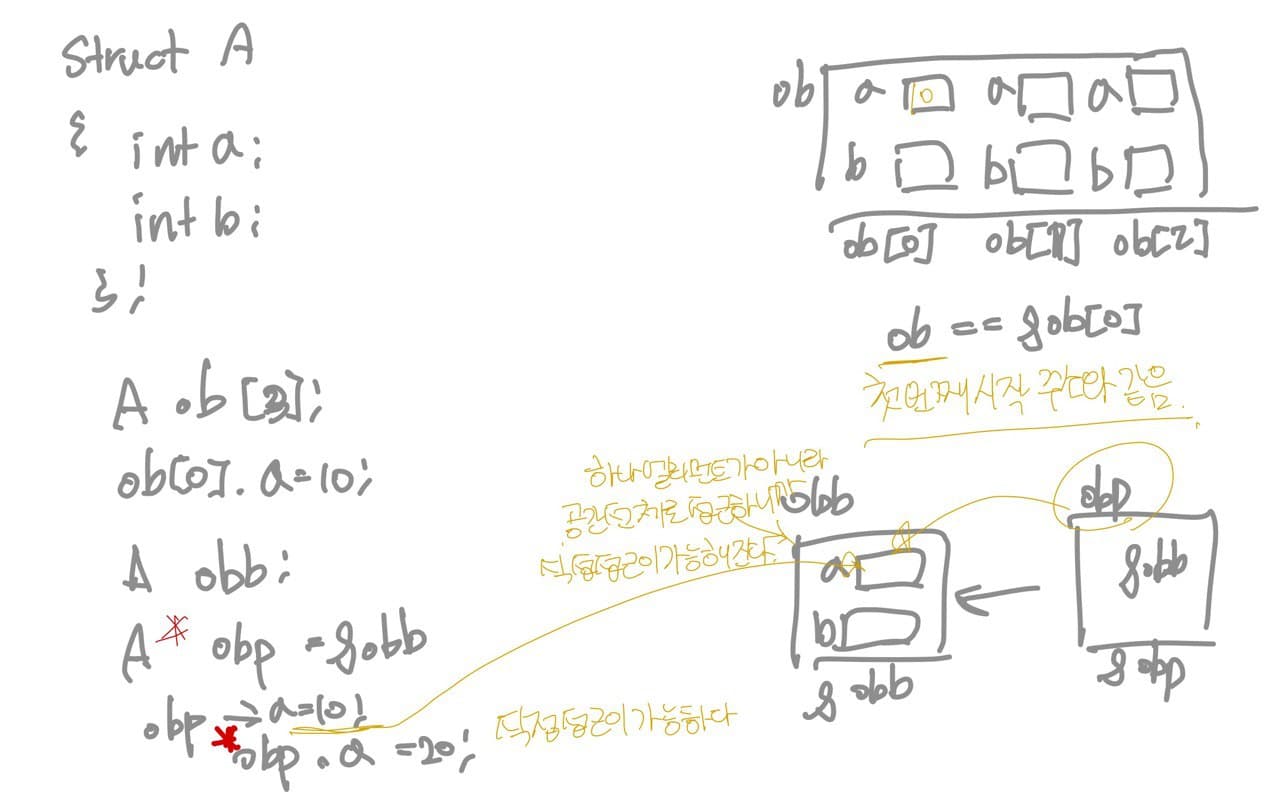 Struct A
{ int a;
int b;
};
A ob[3];
ob[0]. a=10;
A obb;
A* obp =&obb
obp → a=10;
*obp . a =20;
직접접근이가능하다
ob a 10 a a
b b b
ob[0] ob[1] ob[2]
ob == &ob[0]
첫번째시작 주소와 같음.
하나엘리먼트가아니라
공간전체로접근하니까
직접접근이가능해진다.
obb
a
b
& obb
obp
&obb
& obp